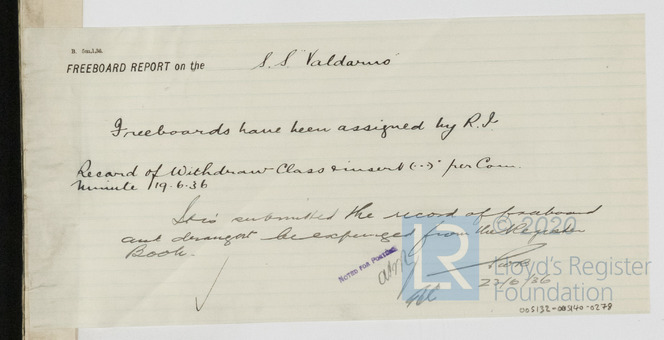 B. 5m.1.36.
FREEBOARD REPORT on the S.S. "Valdarno"
Freeboards have been assigned by R.I.
Record of Withdraw Class & insert (-.-) per Com.
Minute 19.6.36
It is submitted the record of freeboard
and be expunged from the Register
Book.
NOTED FOR POSTING
22/6/36
© 2020
LR
Lloyd's Register
Foundation
005132-005140-0278